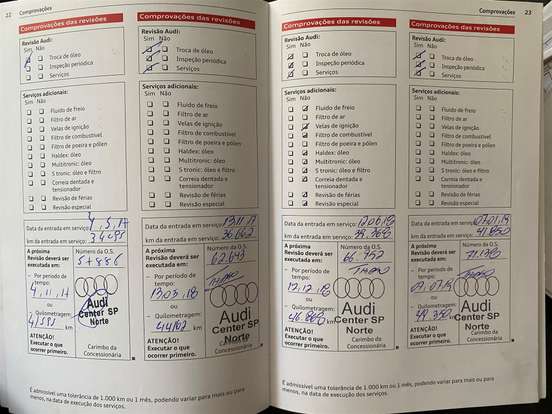 22 Comprovações
Comprovações das revisões
Revisão Audi:
Sim Não
Troca de óleo
Inspeção periódica
Serviços
Serviços adicionais:
Sim Não
Fluido de freio
Filtro de ar
Velas de ignição
Filtro de combustível
Filtro de poeira e pólen
Haldex: óleo
Multitronic: óleo
S tronic: óleo e filtro
Correia dentada e
tensionador
Revisão de férias
Revisão especial
Data da entrada em serviço:
km da entrada em serviço:
A próxima
Revisão deverá ser
executada em:
Número da O.S.
– Por período de
tempo:
ou
– Quilometragem:
km
ATENÇÃO!
Executar o que
ocorrer primeiro.
Audi
Center SP
Norte
Carimbo da
Concessionária
Comprovações das revisões
Revisão Audi:
Sim Não
Troca de óleo
Inspeção periódica
Serviços
Serviços adicionais:
Sim Não
Fluido de freio
Filtro de ar
Velas de ignição
Filtro de combustível
Filtro de poeira e pólen
Haldex: óleo
Multitronic: óleo
S tronic: óleo e filtro
Correia dentada e
tensionador
Revisão de férias
Revisão especial
Data da entrada em serviço:
km da entrada em serviço: 36.662
A próxima
Revisão deverá ser
executada em:
Número da O.S.
62.643
– Por período de
tempo:
13.03.18
ou
– Quilometragem:
km
ATENÇÃO!
Executar o que
ocorrer primeiro.
Audi
Center SP
Norte
Concessionária
É admissível uma tolerância de 1.000 km ou 1 mês, podendo variar para mais ou para
menos, na data de execução dos serviços.
Comprovações 23
Comprovações das revisões
Revisão Audi:
Sim Não
Troca de óleo
Inspeção periódica
Serviços
Serviços adicionais:
Sim Não
Fluido de freio
Filtro de ar
Velas de ignição
Filtro de combustível
Filtro de poeira e pólen
Haldex: óleo
Multitronic: óleo
S tronic: óleo e filtro
Correia dentada e
tensionador
Revisão de férias
Revisão especial
Data da entrada em serviço:
km da entrada em serviço:
A próxima
Revisão deverá ser
executada em:
Número da O.S.
66.952
– Por período de
tempo:
12.12.18
ou
– Quilometragem:
km
ATENÇÃO!
Executar o que
ocorrer primeiro.
Audi
Center SP
Norte
Carimbo da
Concessionária
Comprovações das revisões
Revisão Audi:
Sim Não
Troca de óleo
Inspeção periódica
Serviços
Serviços adicionais:
Sim Não
Fluido de freio
Filtro de ar
Velas de ignição
Filtro de combustível
Filtro de poeira e pólen
Haldex: óleo
Multitronic: óleo
S tronic: óleo e filtro
Correia dentada e
tensionador
Revisão de férias
Revisão especial
Data da entrada em serviço:
km da entrada em serviço:
A próxima
Revisão deverá ser
executada em:
Número da O.S.
– Por período de
tempo:
ou
– Quilometragem:
km
ATENÇÃO!
Executar o que
ocorrer primeiro.
Audi
Center SP
Norte
Carimbo da
Concessionária
É admissível uma tolerância de 1.000 km ou 1 mês, podendo variar para mais ou para
menos, na data de execução dos serviços.